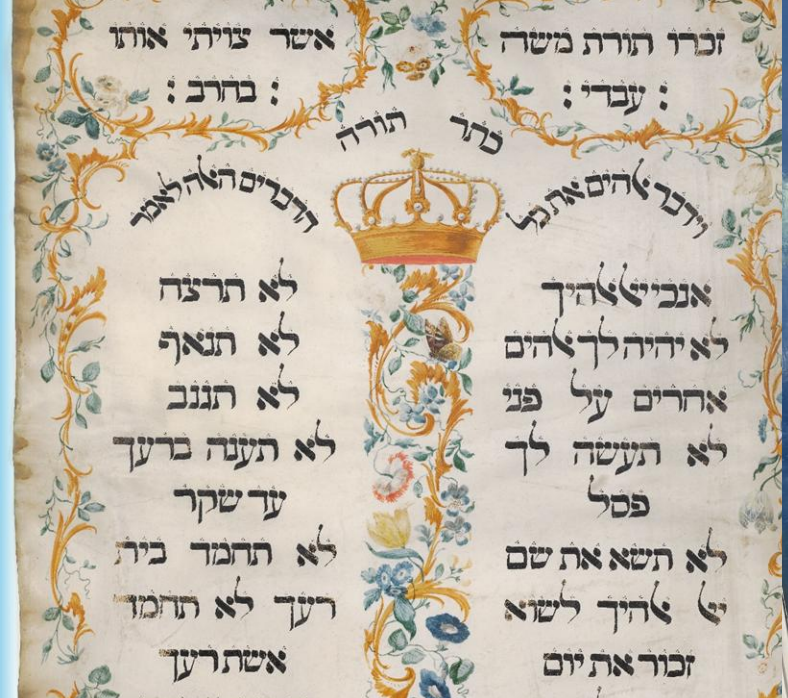 זכרו תורת משה
: עבדי :
אשר צויתי אותו
: בחרב :
כתר תורה
וידבר אלהים את כל
הדברים האלה לאמר
אנכי יי אלהיך
לא יהיה לך אלהים
אחרים על פני
לא תעשה לך
פסל
לא תשא את שם
יי אלהיך לשוא
זכור את יום
לא תרצח
לא תנאף
לא תגנב
לא תענה ברעך
עד שקר
לא תחמד בית
רעך לא תחמד
אשת רעך